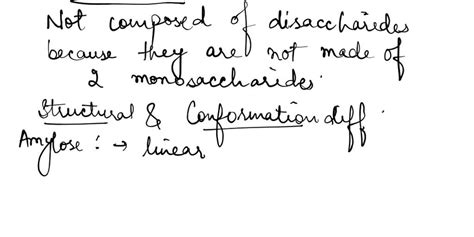 Not composed of disaccharides
because they are not made of
2 monosaccharides.
Structural & Conformation diff.
Amylose : → linear